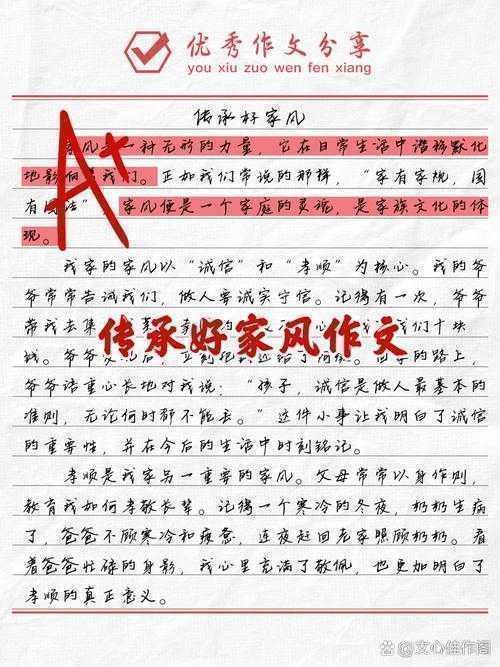 优秀作文分享
you xiu zuo wen fen xiang
传承好家风
A+
家风是一种无形的力量，它在日常生活中潜移默化
地影响着我们。正如我们常说的那样，“家有家规，国
有国法”家风便是一个家庭的灵魂，是家族文化的体
现。
我家的家风以“诚信”和“孝顺”为核心。我的爷
爷常常告诫我们，做人要诚实守信。记得有一次，爷爷
带我去集
们十块
传承好家风作文
钱。爷爷
的路上，
爷爷语重心长地对我说：“孩子，诚信是做人最基本的
准则，无论何时都不能丢。”这件小事让我明白了诚信
的重要性，并在今后的生活中时刻铭记。
孝顺是我家另一重要的家风。父母常常以身作则，
教育我如何孝敬长辈。记得一个寒冷的冬夜，奶奶生病
了，爸爸不顾寒冷和疲惫，连夜赶回老家照顾奶奶。看
着爸爸忙碌的身影，我心里充满了敬佩，也更加明白了
孝顺的真正意义。
文心佳作阁